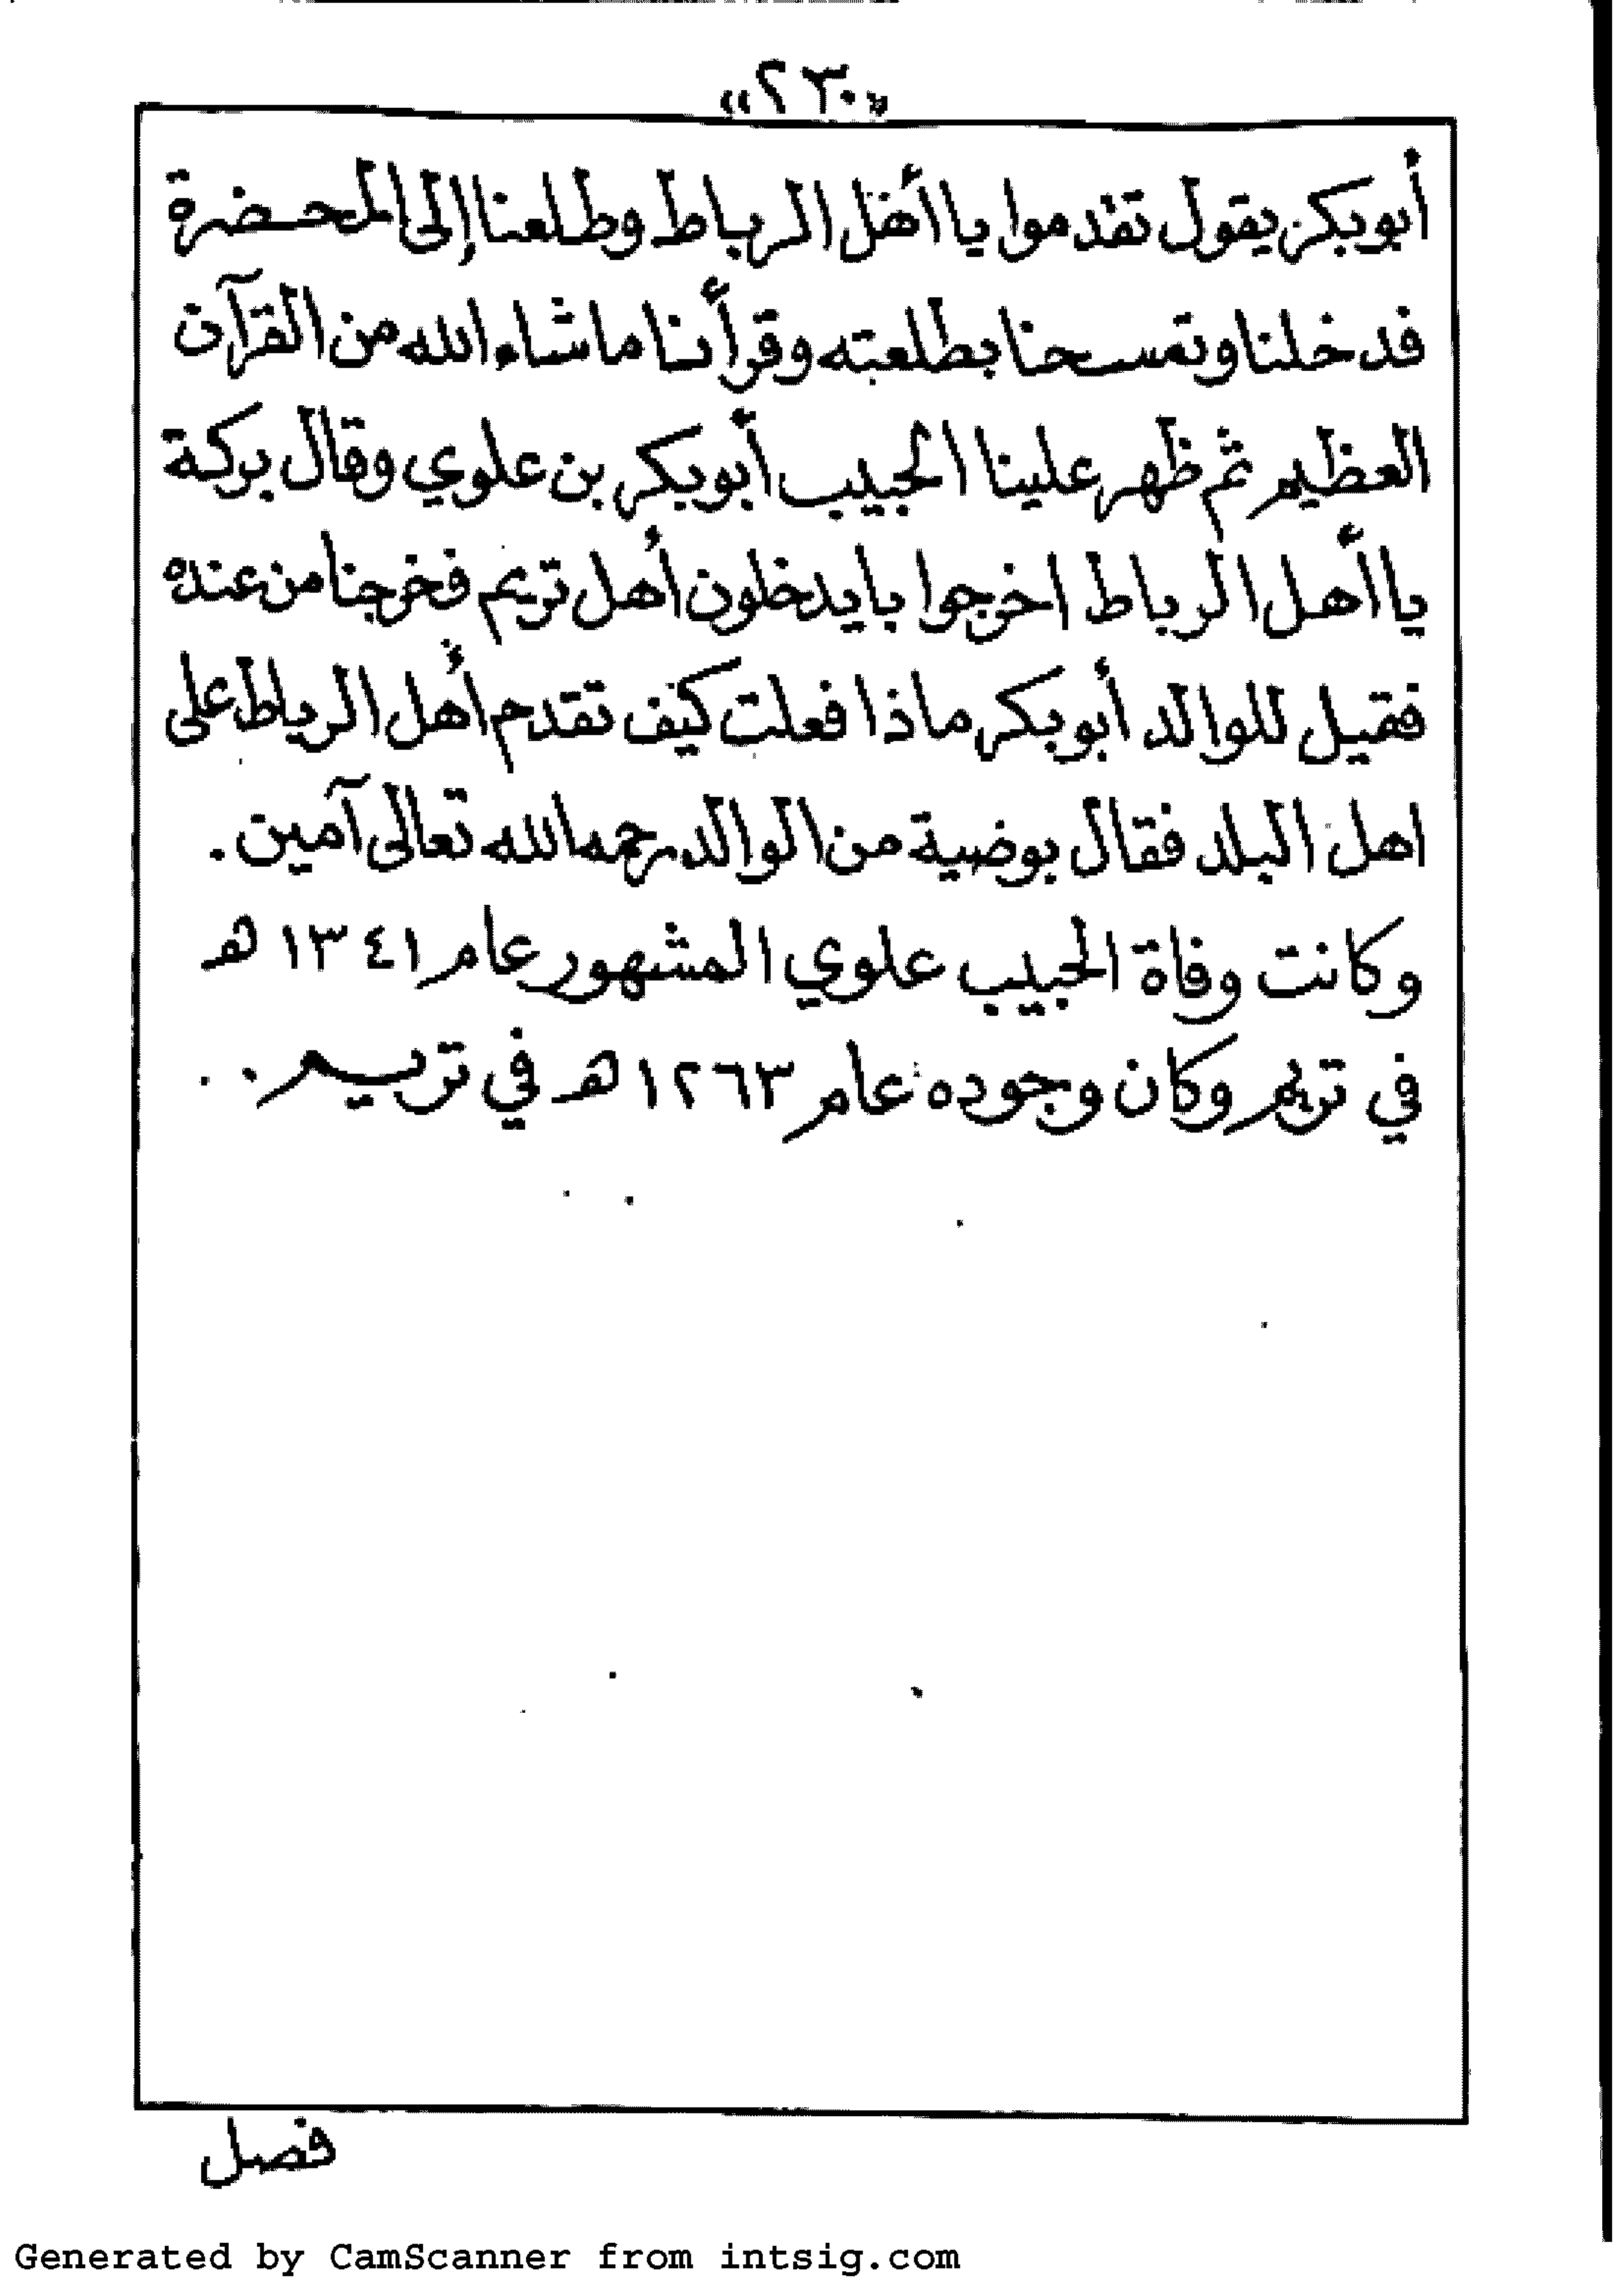 «٢٣٠»
أبوبكر يقول تقدموا يا أهل الرباط وطلعنا إلى المحضرة
فدخلنا وتمسحنا بطلعته وقرأنا ماشاء الله من القرآن
العظيم ثم ظهر علينا الحبيب أبوبكر بن علوي وقال بركة
يا أهل الرباط اخرجوا بايدخلون أهل تريم فخرجنا من عنده
فقيل للوالد أبوبكر ماذا فعلت كيف تقدم أهل الرباط على
اهل البلد فقال بوضية من الوالد رحمه الله تعالى آمين .
وكانت وفاة الحبيب علوي المشهور عام ١٣٤١ هـ
في تريم وكان وجوده عام ١٢٦٣ هـ في تريم . .
فصل
Generated by CamScanner from intsig.com